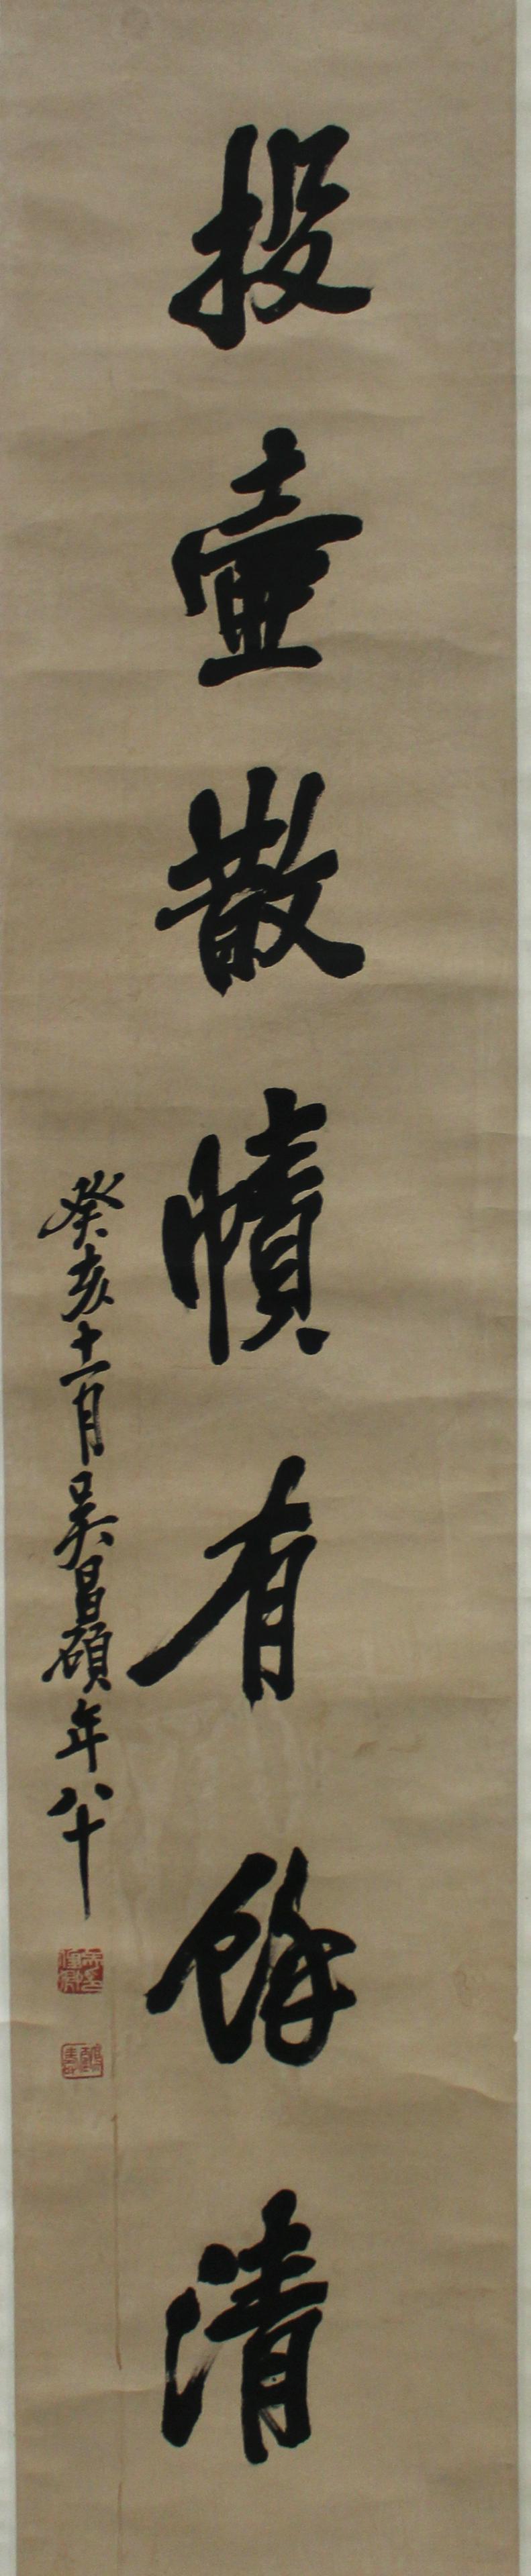 投壺散帙有餘清
癸亥十一月吳昌碩年八十